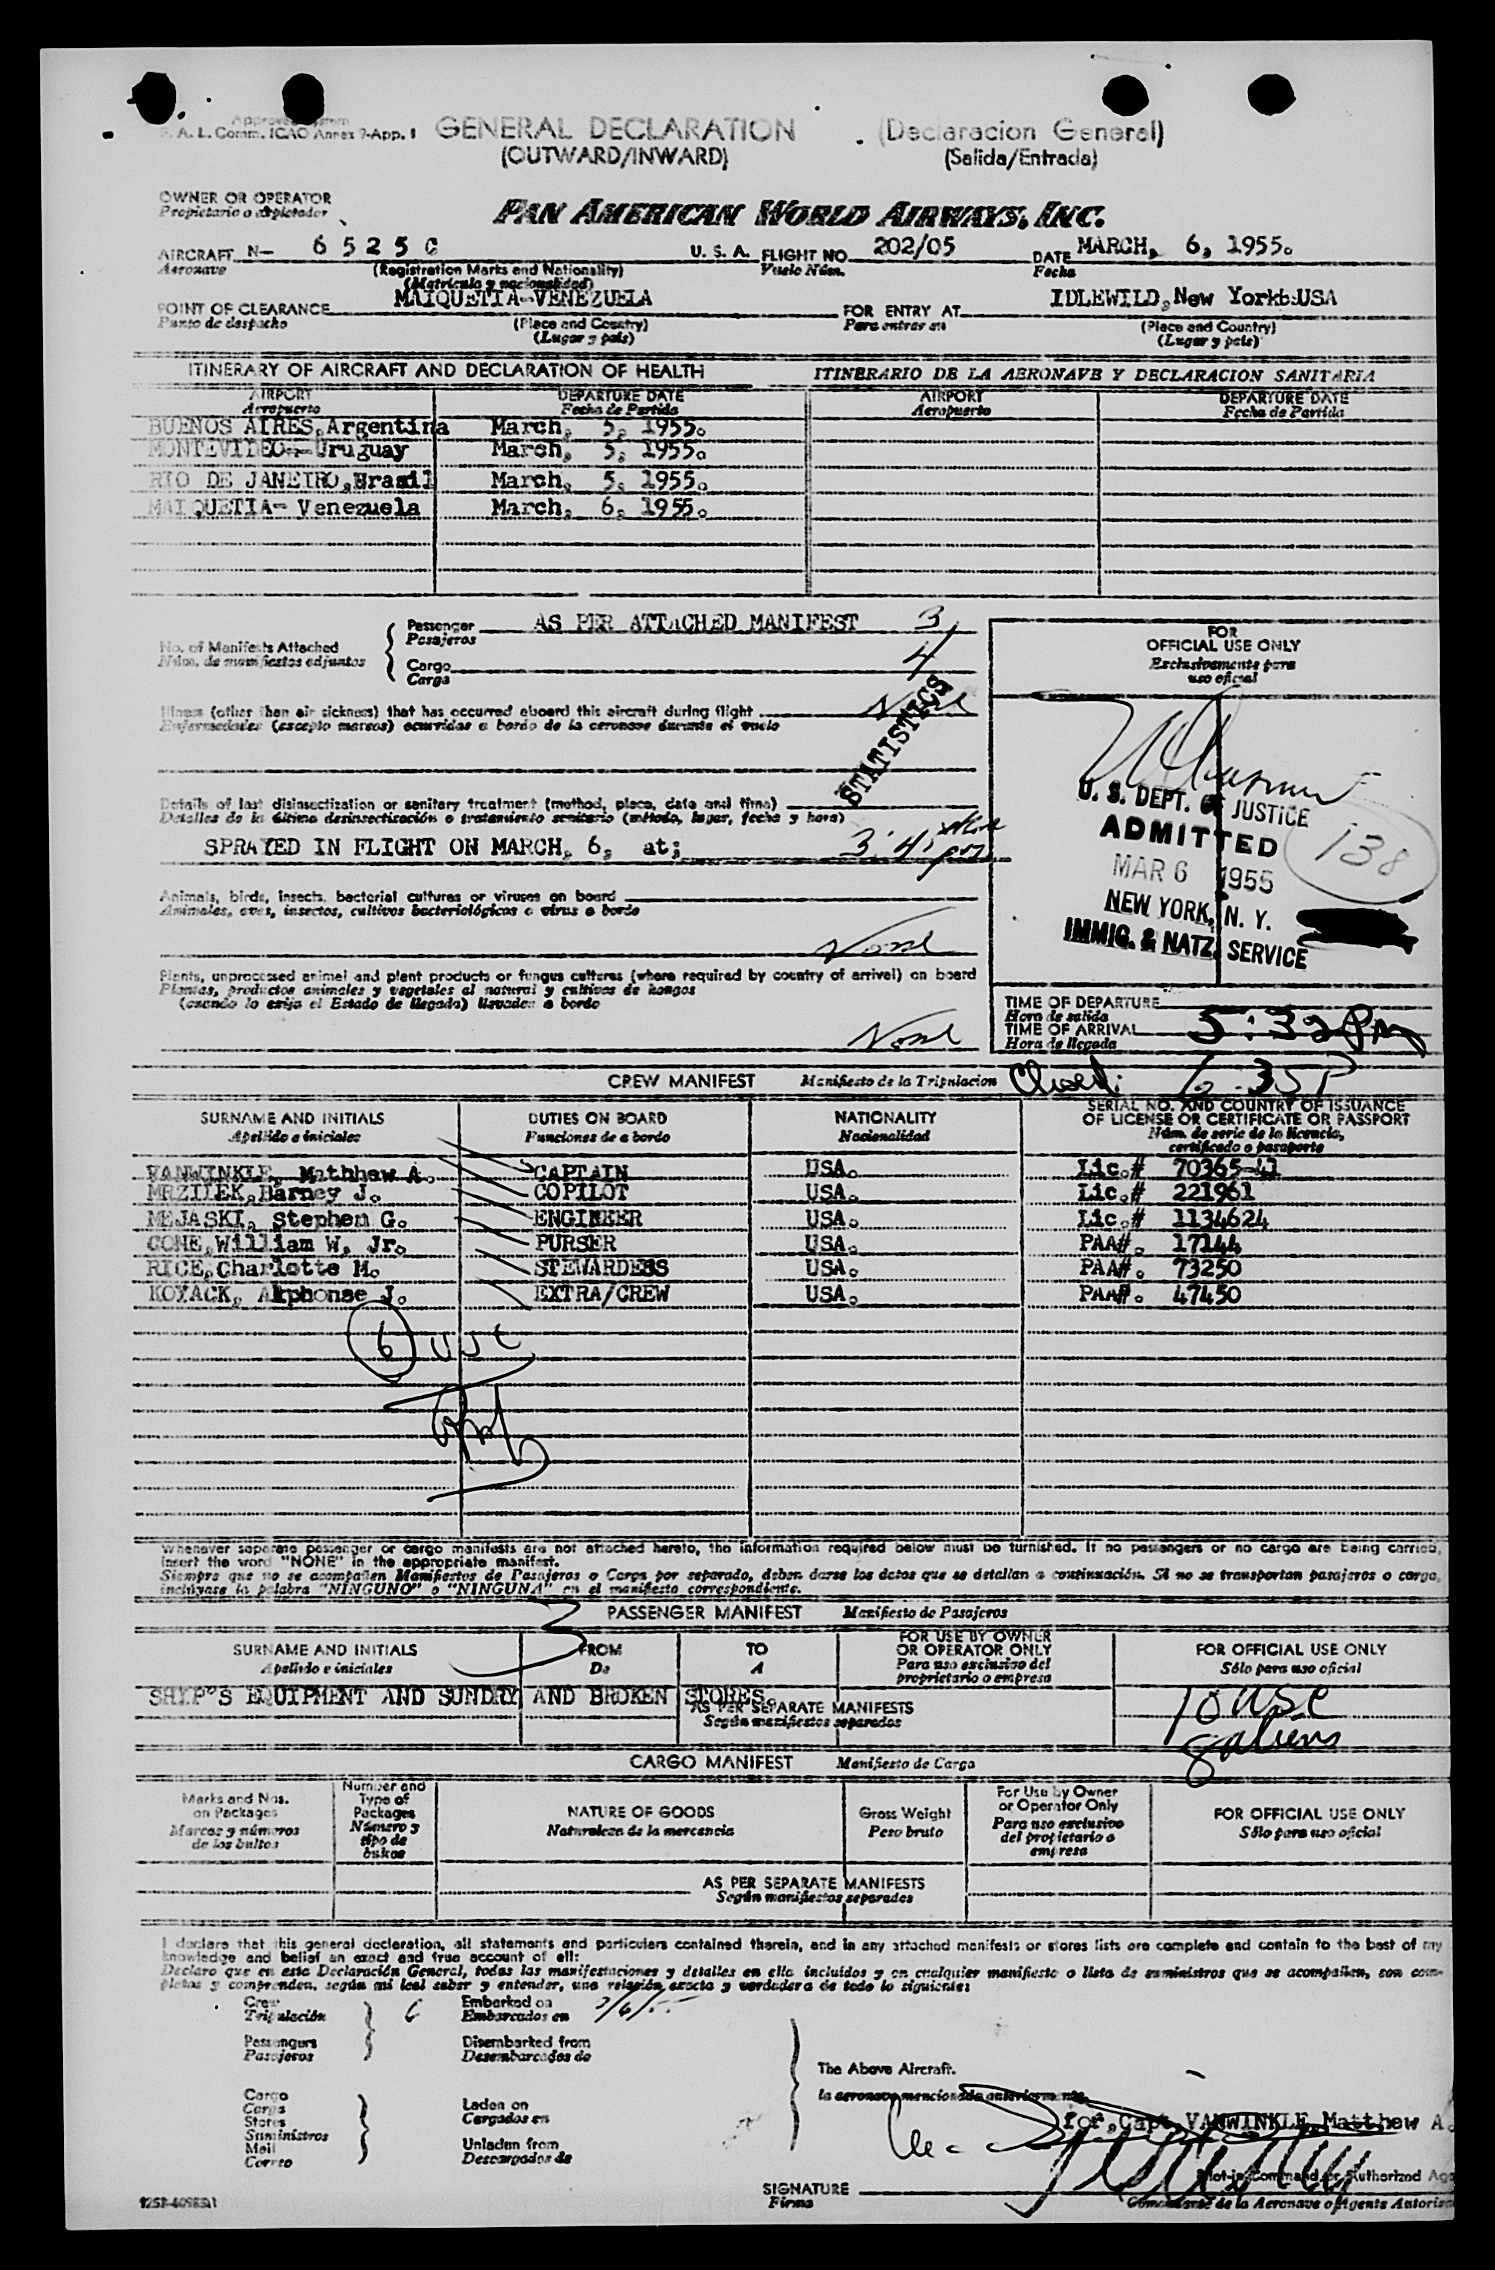 GENERAL DECLARATION (Declaracion General)
(OUTWARD/INWARD) (Salida/Entrada)
A. L. Comm. ICAO Annex 9-App. 1
OWNER OR OPERATOR
Propietario o explotador
PAN AMERICAN WORLD AIRWAYS, INC.
AIRCRAFT N- 6 5 2 5 C U. S. A. FLIGHT NO. 202/05 DATE MARCH, 6, 1955.
Aeronave (Registration Marks and Nationality) Vuelo Núm. Fecha
(Matrícula y nacionalidad)
POINT OF CLEARANCE MAIQUETIA-VENEZUELA FOR ENTRY AT IDLEWILD, New York USA
Punto de despacho (Place and Country) Para entrar en (Place and Country)
(Lugar y país) (Lugar y país)
ITINERARY OF AIRCRAFT AND DECLARATION OF HEALTH ITINERARIO DE LA AERONAVE Y DECLARACION SANITARIA
AIRPORT DEPARTURE DATE AIRPORT DEPARTURE DATE
Aeropuerto Fecha de Partida Aeropuerto Fecha de Partida
BUENOS AIRES,Argentina March, 5, 1955.
MONTEVIDEO--Uruguay March, 5, 1955.
RIO DE JANEIRO,Brasil March, 5, 1955.
MAIQUETIA- Venezuela March, 6, 1955.
No. of Manifests Attached
Núm. de manifiestos adjuntos
Passenger AS PER ATTACHED MANIFEST 3
Pasajeros
Cargo 4
Carga
Illness (other than air sickness) that has occurred aboard this aircraft during flight None
Enfermedades (excepto mareos) ocurridas a bordo de la aeronave durante el vuelo
STATISTICS
Details of last disinsectization or sanitary treatment (method, place, date and time)
Detalles de la última desinsectización o tratamiento sanitario (método, lugar, fecha y hora)
SPRAYED IN FLIGHT ON MARCH, 6, at;
Animals, birds, insects, bacterial cultures or viruses on board
Animales, aves, insectos, cultivos bacteriológicos o virus a bordo
None
Plants, unprocessed animal and plant products or fungus cultures (where required by country of arrival) on board
Plantas, productos animales y vegetales al natural y cultivos de hongos
(cuando lo exija el Estado de llegada) llevados a bordo
None
FOR
OFFICIAL USE ONLY
Exclusivamente para
uso oficial
U. S. DEPT. OF JUSTICE
ADMITTED
138
MAR 6 1955
NEW YORK, N. Y.
IMMIG. & NATZ. SERVICE
TIME OF DEPARTURE
Hora de salida
TIME OF ARRIVAL 5:32 Pm
Hora de llegada
CREW MANIFEST Manifiesto de la Tripulacion
SURNAME AND INITIALS DUTIES ON BOARD NATIONALITY SERIAL NO. AND COUNTRY OF ISSUANCE
OF LICENSE OR CERTIFICATE OR PASSPORT
Apellido e iniciales Funciones de a bordo Nacionalidad Núm. de serie de la licencia,
certificado o pasaporte
VANWINKLE, Mathhew A. CAPTAIN USA. Lic.# 70365-41
MRZILEK,Barney J. COPILOT USA. Lic.# 221961
MEJASKI, Stephen G. ENGINEER USA. Lic.# 1134624
CONE,William W, Jr. PURSER USA. PAA#. 17144
RICE,Charlotte M. STEWARDESS USA. PAA#. 73250
KOYACK, Alphonse J. EXTRA/CREW USA. PAA#. 47450
6 USC
Whenever separate passenger or cargo manifests are not attached hereto, the information required below must be furnished. If no passengers or no cargo are being carried,
insert the word "NONE" in the appropriate manifest.
Siempre que no se acompañen Manifiestos de Pasajeros o Carga por separado, deben darse los datos que se detallan a continuación. Si no se transportan pasajeros o carga,
inclúyase la palabra "NINGUNO" o "NINGUNA" en el manifiesto correspondiente.
PASSENGER MANIFEST Manifiesto de Pasajeros
3
SURNAME AND INITIALS FROM TO FOR USE BY OWNER
OR OPERATOR ONLY FOR OFFICIAL USE ONLY
Apellido e iniciales De A Para uso exclusivo del
propietario o empresa Sólo para uso oficial
SHIP'S EQUIPMENT AND SUNDRY AND BROKEN STORES.
AS PER SEPARATE MANIFESTS
Según manifiestos separados
10 USC
8 aliens
CARGO MANIFEST Manifiesto de Carga
Marks and Nos.
on Packages
Marcas y números
de los bultos
Number and
Type of
Packages
Número y
tipo de
bultos
NATURE OF GOODS
Naturaleza de la mercancia
Gross Weight
Peso bruto
For Use by Owner
or Operator Only
Para uso exclusivo
del propietario o
empresa
FOR OFFICIAL USE ONLY
Sólo para uso oficial
AS PER SEPARATE MANIFESTS
Según manifiestos separados
I declare that this general declaration, all statements and particulars contained therein, and in any attached manifests or stores lists are complete and contain to the best of my
knowledge and belief an exact and true account of all:
Declaro que en esta Declaración General, todas las manifestaciones y detalles en ella incluidos y en cualquier manifiesto o lista de suministros que se acompañen, son com-
pletos y comprenden, según mi leal saber y entender, una relación exacta y verdadera de todo lo siguiente:
Crew 6 Embarked on 3/6/55
Tripulación Embarcados en
Passengers Disembarked from
Pasajeros Desembarcados de
The Above Aircraft.
la aeronave mencionada anteriormente.
Cargo
Carga
Stores
Suministros
Mail
Correo
Laden on
Cargados en
Unladen from
Descargados de
for,Capt. VANWINKLE,Matthew A.
SIGNATURE Pilot-in-Command or Authorized Age
Firma Comandante de la Aeronave o Agente Autoriza